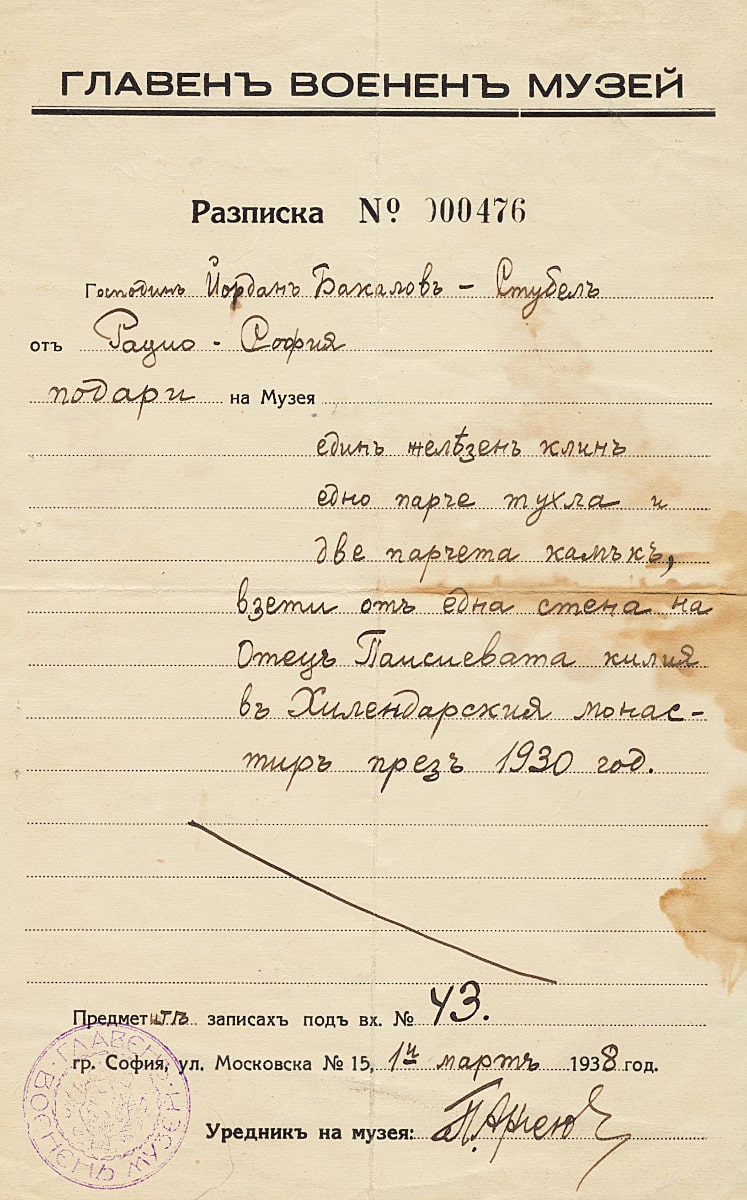 ГЛАВЕНЪ ВОЕНЕНЪ МУЗЕЙ
Разписка № 000476
Господинъ Йорданъ Бакаловъ – Стубелъ
отъ Радио - София
подари на Музея
единъ желѣзенъ клинъ
едно парче тухла и
две парчета камъкъ,
взети отъ една стена на
Отецъ Паисиевата килия
въ Хилендарския монас-
тиръ презъ 1930 год.
Предметитѣ записахъ подъ вх. № 43.
гр. София, ул. Московска № 15, 1й мартъ 1938 год.
Уредникъ на музея:
ГЛАВЕНЪ ВОЕНЕНЪ МУЗЕЙ